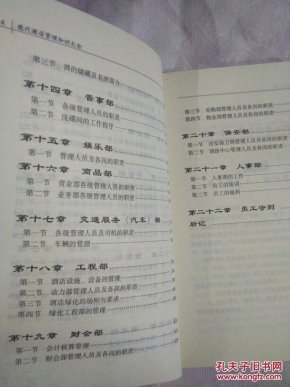 现代酒店管理知识大全
第三节 酒的储藏及名酒简介
第十四章 管事部
第一节 各级管理人员的职责
第二节 洗碟间的工作程序
第十五章 娱乐部
第一节 管理人员及各岗的职责
第十六章 商品部
第一节 营业部各级管理人员的职责
第二节 业务部各级管理人员的职责
第十七章 交通服务(汽车)部
第一节 各级管理人员及司机的职责
第二节 车辆的管理
第十八章 工程部
第一节 酒店设施、设备的管理
第二节 动力部管理人员及各岗的职责
第三节 酒店绿化的场所与要求
第四节 绿化工程部的管理
第十九章 财会部
第一节 会计核算管理
第二节 财会部管理人员及各岗的职责
第三节 采购部管理人员及各岗的职责
第四节 物业部管理人员及各岗的职责
第二十章 保安部
第一节 治安保卫部管理人员及各岗的职责
第二节 消防中心管理人员及各岗的职责
第二十一章 人事部
第一节 人事部的工作
第二节 员工的培训
第三节 员工的福利
第二十二章 员工守则
后记
孔夫子旧书网